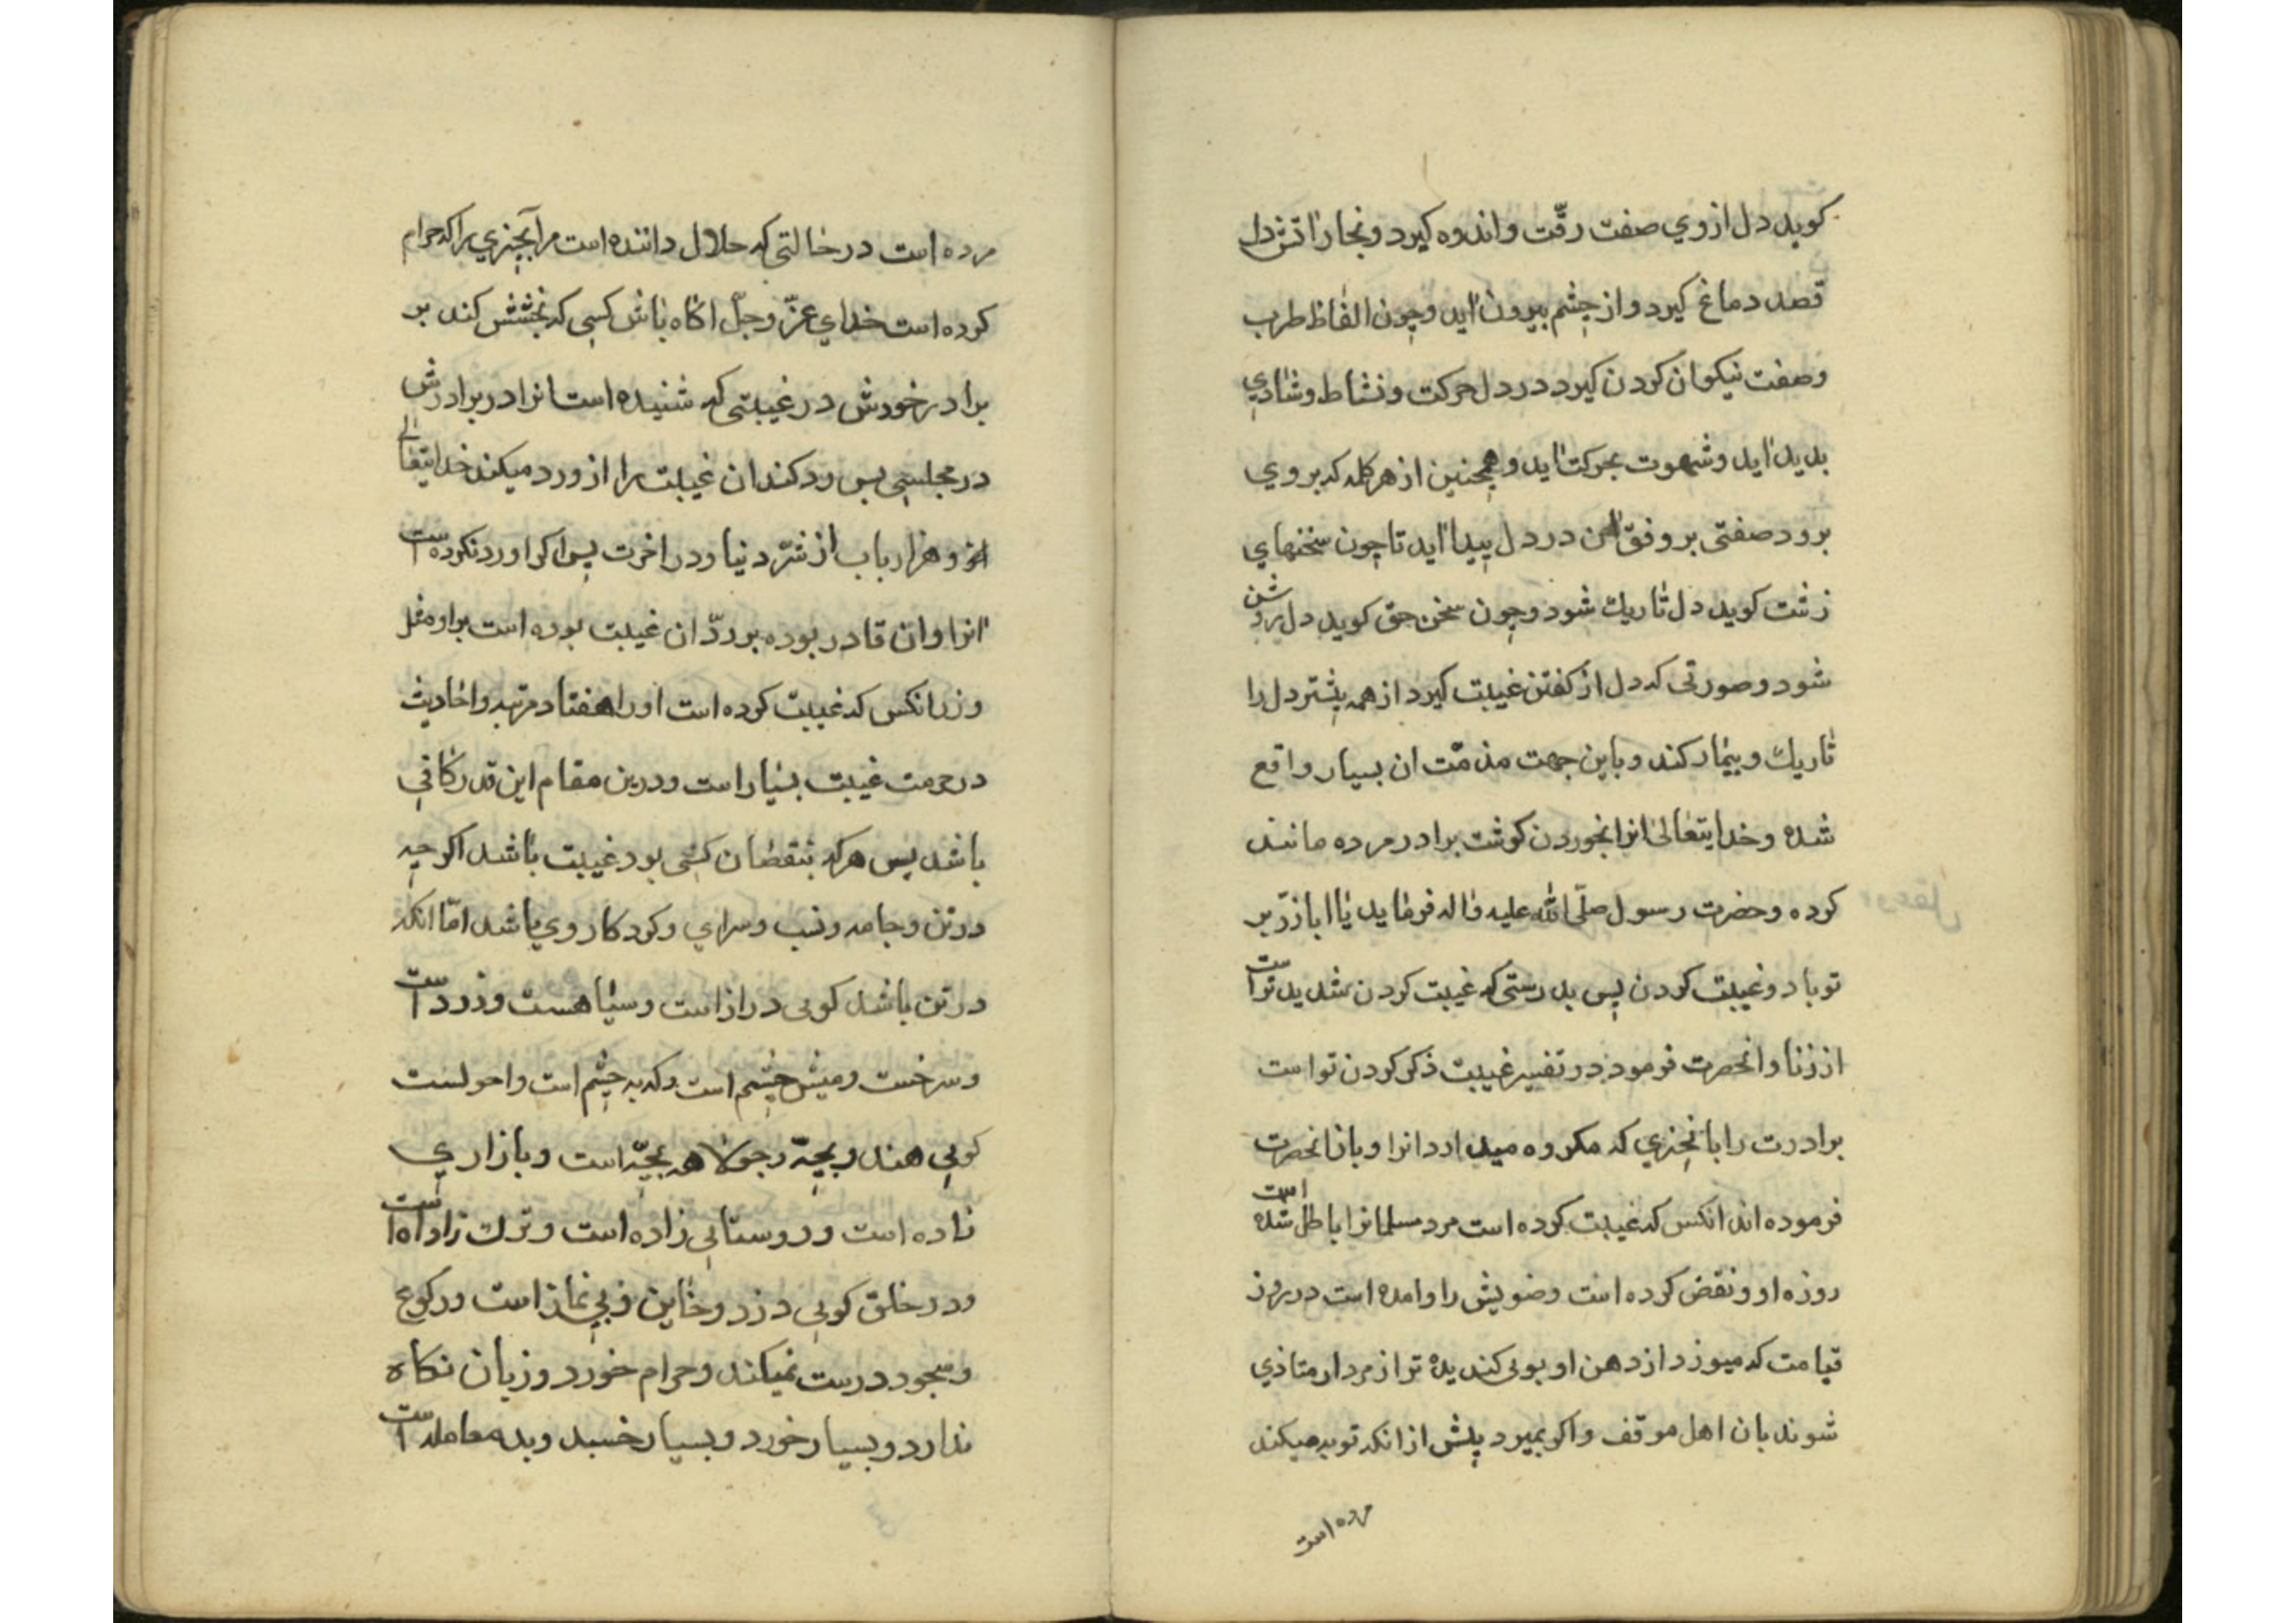 کوید دل از وي صفت رقّت و اندوه کیرد و بخار اتش دل
قصد دماغ کیرد و از چشم بیرون اید و چون الفاظ طرب
و صفت نیکوان کردن کیرد در دل حرکت و نشاط و شادي
بدید اید و شهوت بحرکت اید و همچنین از هر کلمه که بر وي
برود صفتی بر وفق ان در دل پیدا اید تا چون سخنهاي
زشت کوید دل تاریك شود و چون سخن حق کوید دل روشن
شود و صورتی که دل از کفتن غیبت کیرد از همه پیشتر دل را
تاریك و بیمار کند و باین جهت مذمّت ان بسیار واقع
شده و خدایتعالی انرا بخوردن کوشت برادر مرده مانند
کرده و حضرت رسول صلّی الله علیه و اله فرماید یا اباذرّ بر
تو باد و غیبت کردن پس بدرستی که غیبت کردن شدیدتر است
از زنا و انحضرت فرمود در تفسیر غیبت ذکر کردن تو است
برادرت را بانچیزي که مکروه میدارد انرا و باز انحضرت
فرموده اند انکس که غیبت کرده است مرد مسلمانرا باطل شده است
روزه او و نقض کرده است وضویش را و امده است در روز
قیامت که میوزد از دهن او بویی کندیده تر از مردار متاذي
شوند بان اهل موقف و اکر بمیرد پیش از انکه توبه میکند
مرده است
مرده است در حالتی که حلال داننده است مر انچیزي را که حرام
کرده است خداي عزّ و جلّ اکاه باش کسی که بخشش کند بر
برادر خودش در غیبتی که شنیده است انرا در برادرش
در مجلسی پس رد کند ان غیبت را از و رد میکند خدایتعالی
از و هزار باب از شرّ دنیا و در اخرت پس اکر او رد نکرده است
انرا و ان قادر بوده بر ردّ ان غیبت بوده است بر او مثل
وزر انکس که غیبت کرده است او را هفتاد مرتبه و احادیث
در حرمت غیبت بسیار است و درین مقام این قدر کافی
باشد پس هر که بنقصان کسی بود غیبت باشد اکر چه
در تن و جامه و نسب و سراي و کردکار وي باشد امّا انکه
در تن باشد کویی دراز است و سیاهست و زرد است
و سرخست و میش چشم است و کربه چشم است و احولست
کویی هندو بچّه و جولاهه بچّه است و بازاري
زاده است و روستایی زاده است و ترك زاده است
و در خلق کویی دزد و خاین و بی نماز است و رکوع
و سجود درست نمیکند و حرام خورد و زبان نکاه
ندارد و بسیار خورد و بسیار خسبد و بد معامله است